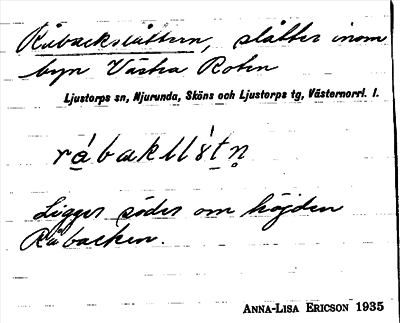 Råbackslåtten, slåtter inom
byn Västra Roten
Ljustorps sn, Njurunda, Sköns och Ljustorps tg, Västernorrl. l.
Ligger söder om höjden
Råbacken.
ANNA-LISA ERICSON 1935